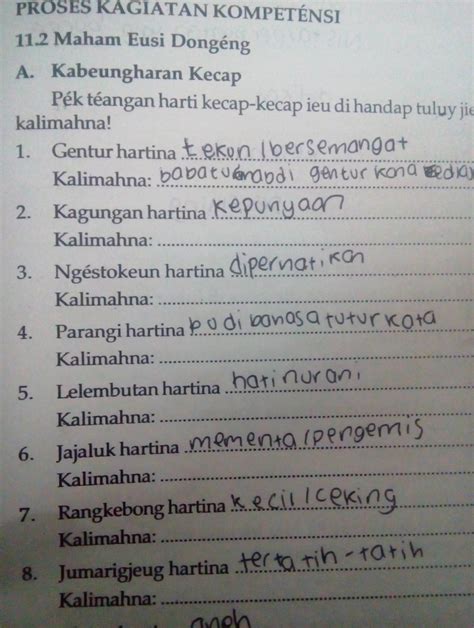 PROSES KAGIATAN KOMPETÉNSI
11.2 Maham Eusi Dongéng
A. Kabeungharan Kecap
Pék téangan harti kecap-kecap ieu di handap tuluy jie
kalimahna!
1. Gentur hartina tekun / bersemangat
Kalimahna: gentur kana
2. Kagungan hartina kepunyaan
Kalimahna:
3. Ngéstokeun hartina dipernatikan
Kalimahna:
4. Parangi hartina budi bahasa tutur kata
Kalimahna:
5. Lelembutan hartina hati nurani
Kalimahna:
6. Jajaluk hartina mementa / pengemis
Kalimahna:
7. Rangkebong hartina kecil / ceking
Kalimahna:
8. Jumarigjeug hartina tertatih-tatih
Kalimahna:
aneh